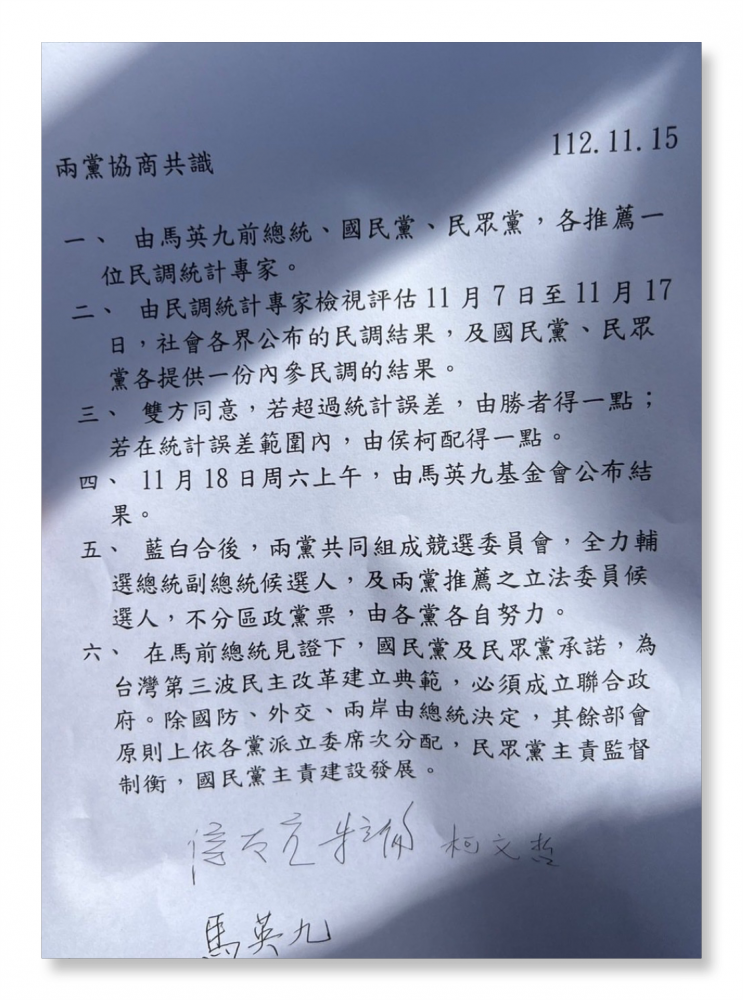 兩黨協商共識 112.11.15
一、 由馬英九前總統、國民黨、民眾黨，各推薦一
位民調統計專家。
二、 由民調統計專家檢視評估11月7日至11月17
日，社會各界公布的民調結果，及國民黨、民眾
黨各提供一份內參民調的結果。
三、 雙方同意，若超過統計誤差，由勝者得一點；
若在統計誤差範圍內，由侯柯配得一點。
四、 11月18日周六上午，由馬英九基金會公布結
果。
五、 藍白合後，兩黨共同組成競選委員會，全力輔
選總統副總統候選人，及兩黨推薦之立法委員候
選人，不分區政黨票，由各黨各自努力。
六、 在馬前總統見證下，國民黨及民眾黨承諾，為
台灣第三波民主改革建立典範，必須成立聯合政
府。除國防、外交、兩岸由總統決定，其餘部會
原則上依各黨派立委席次分配，民眾黨主責監督
制衡，國民黨主責建設發展。
侯友宜 朱立倫 柯文哲
馬英九